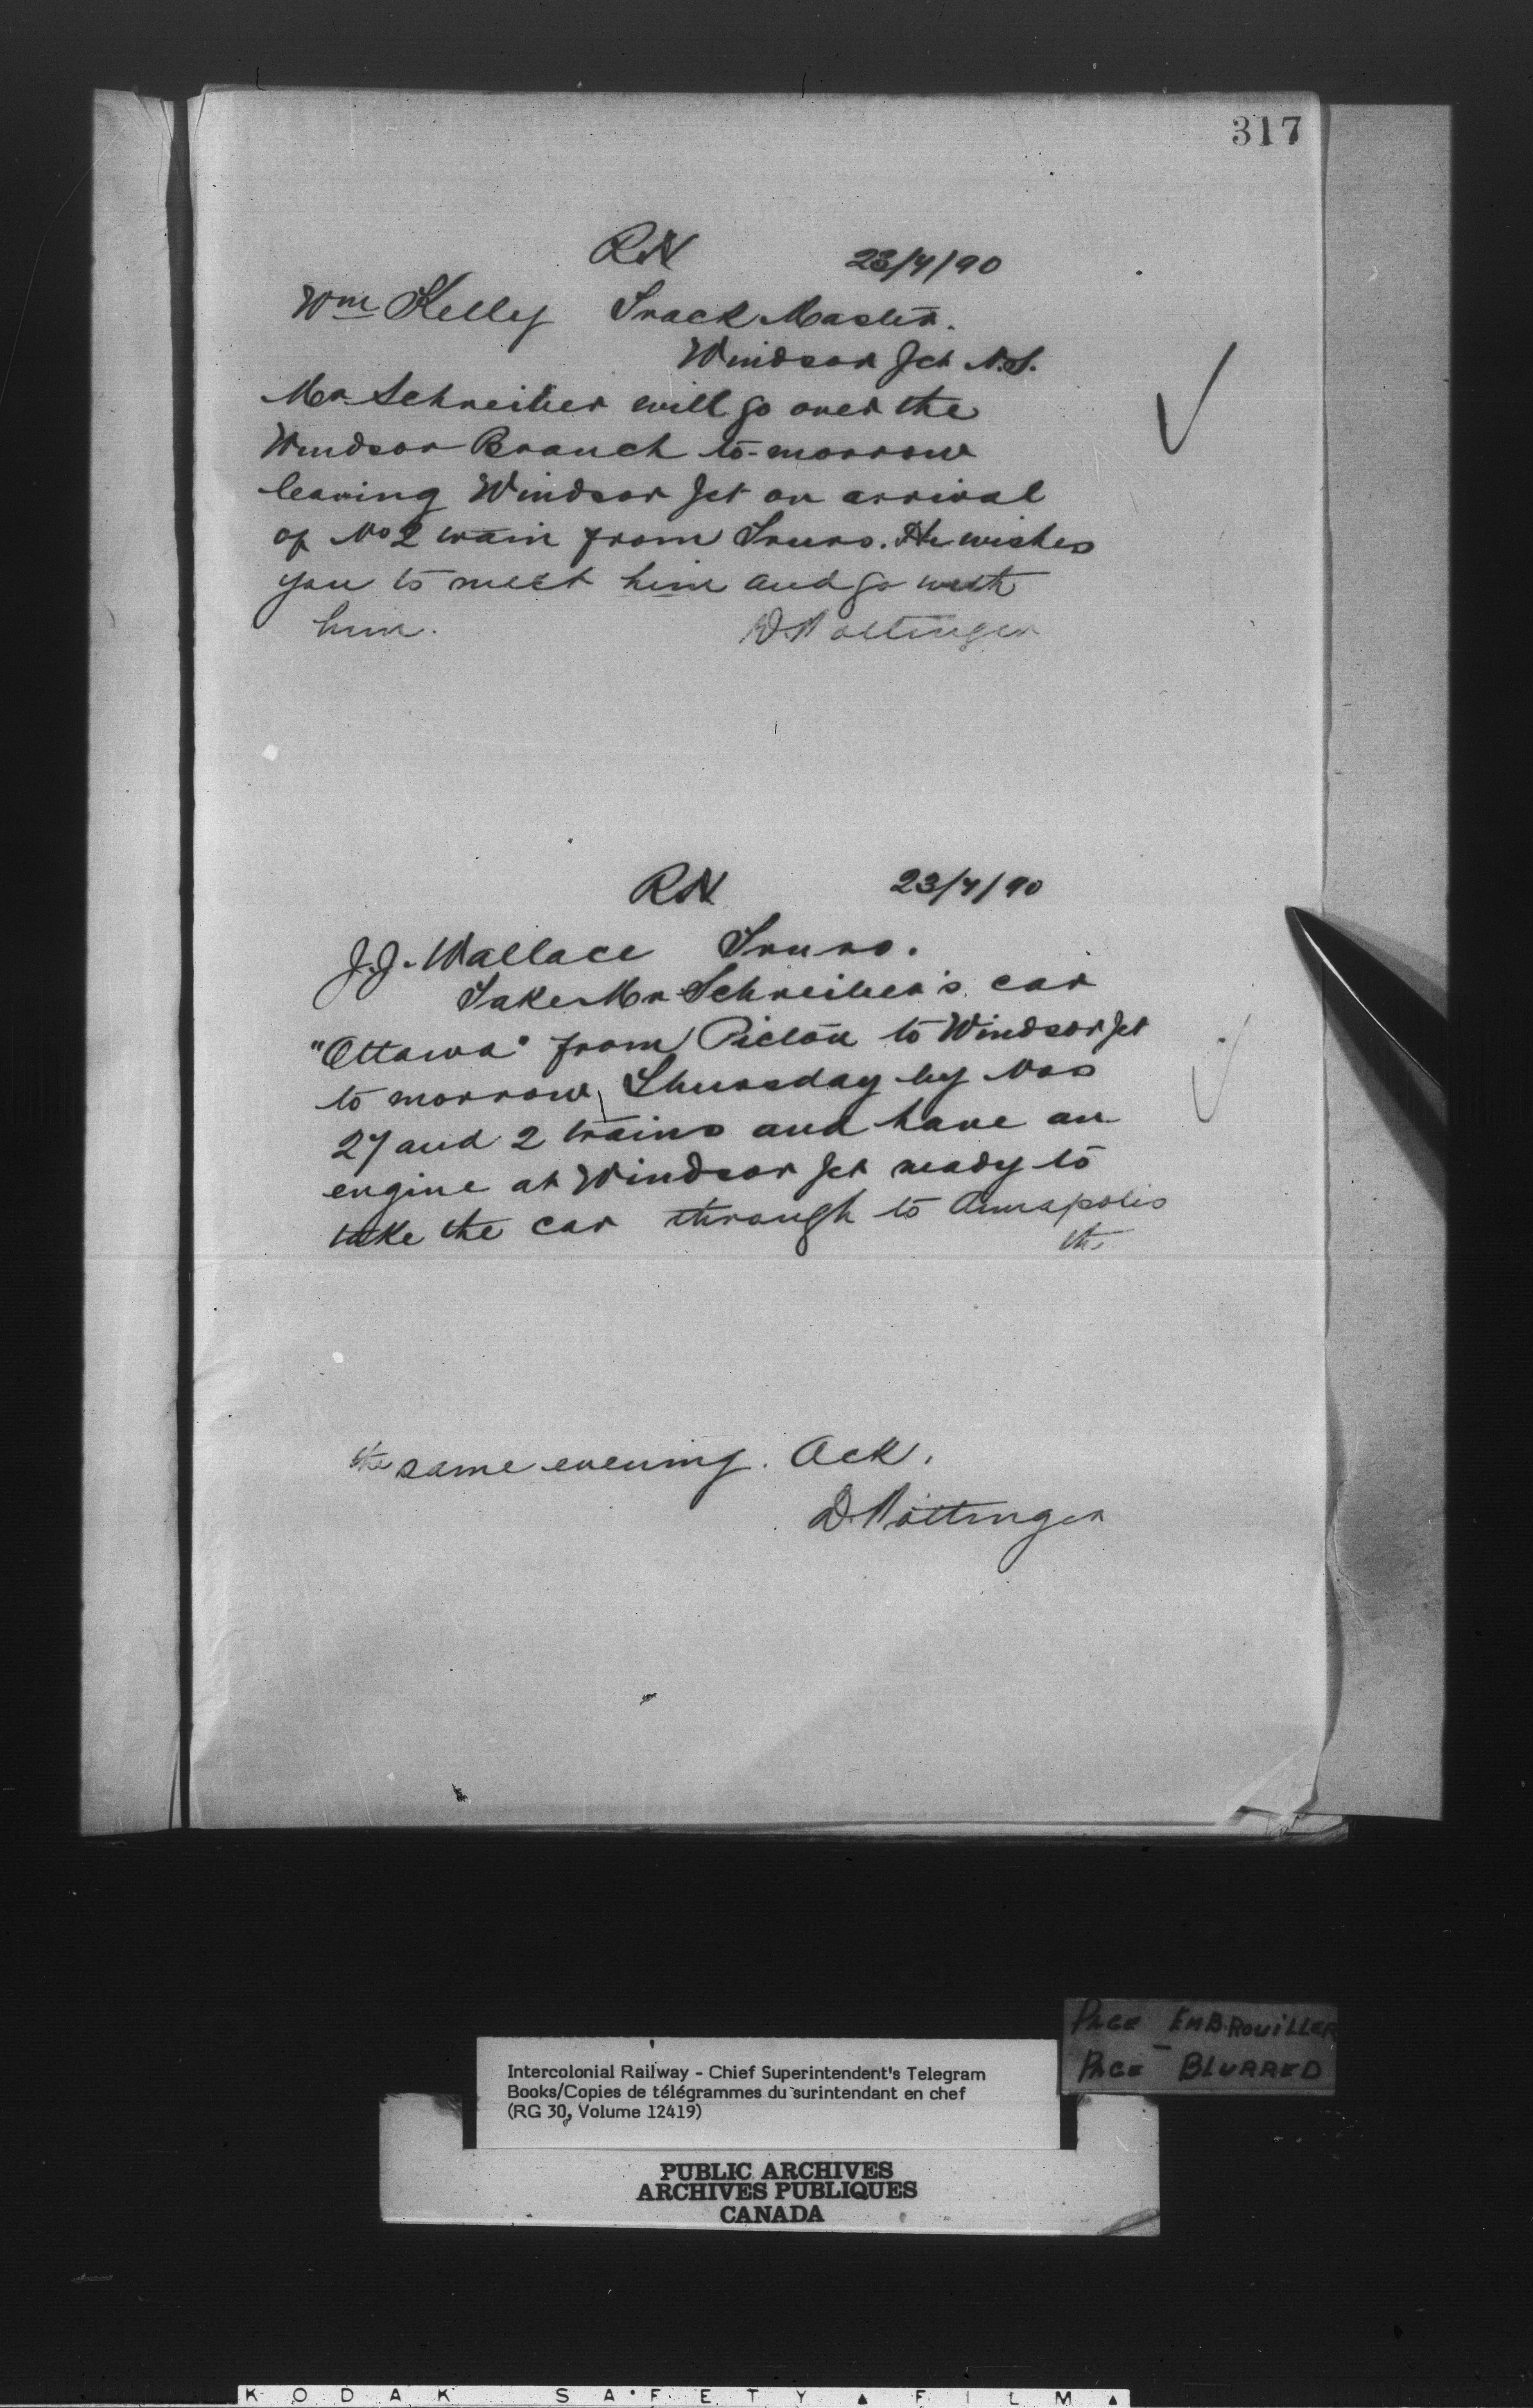 317
RN 23/4/90
Wm Kelly Track Master.
Windsor Jct N.S.
Mr Schreiber will go over the
Windsor Branch to-morrow
leaving Windsor Jct on arrival
of No 2 train from Truro. He wishes
you to meet him and go with
him. D Pottinger
RN 23/4/90
J.J. Wallace Truro.
Take Mr Schreiber's car
"Ottawa" from Pictou to Windsor Jct
to morrow, Thursday by Nos
27 and 2 trains and have an
engine at Windsor Jct ready to
take the car through to Annapolis
the
the same evening. Ack.
D. Pottinger
PAGE EMBROUILLER
PAGE BLURRED
Intercolonial Railway - Chief Superintendent's Telegram
Books/Copies de télégrammes du surintendant en chef
(RG 30, Volume 12419)
PUBLIC ARCHIVES
ARCHIVES PUBLIQUES
CANADA
KODAK SAFETY FILM